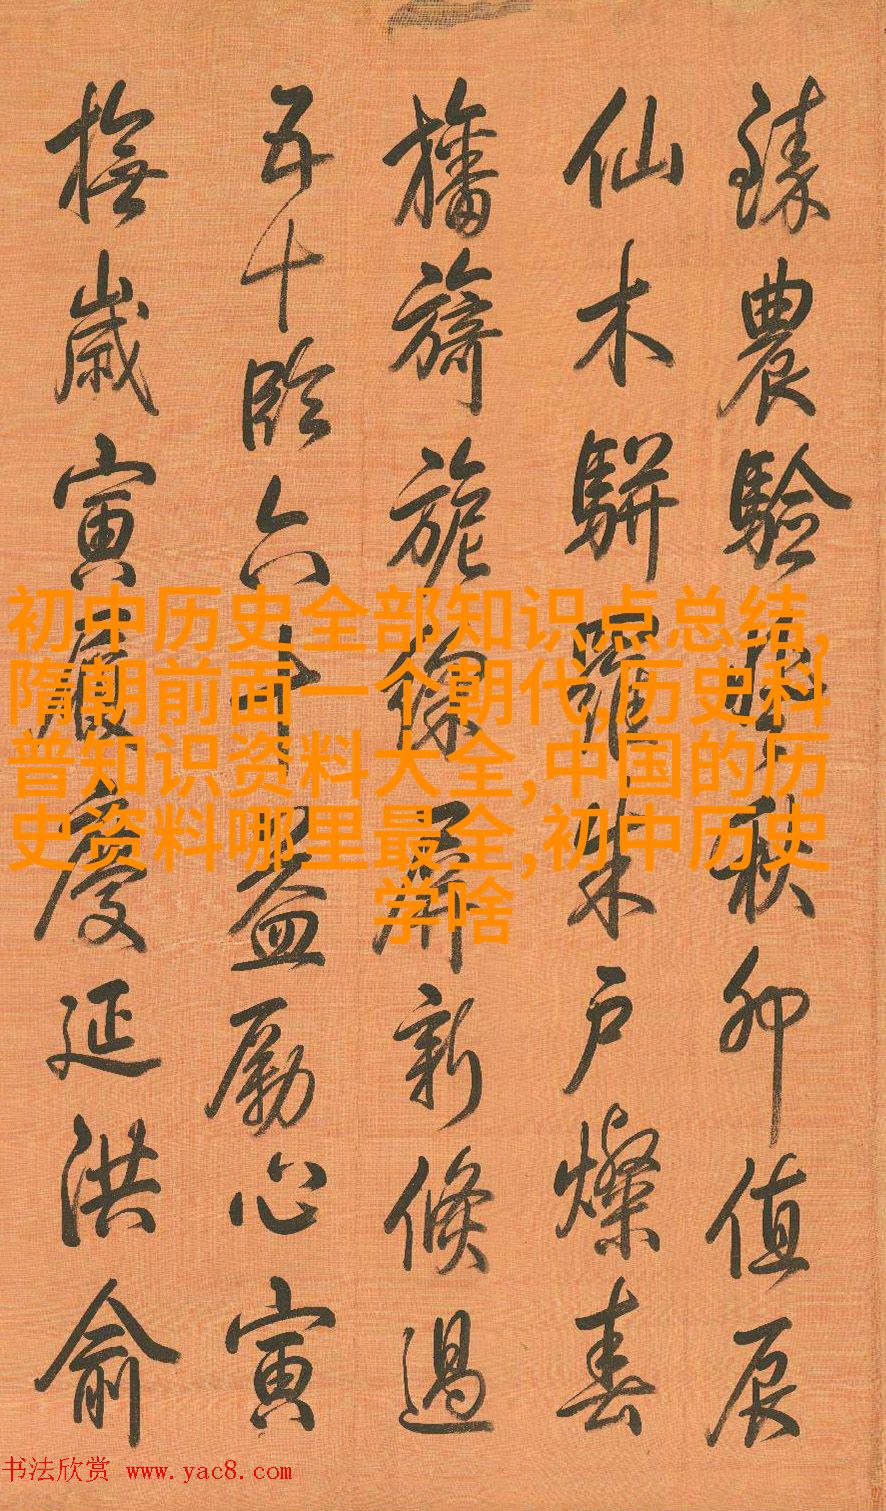 臻農驗秋卯值辰
仙木駢羅朱戶燦春
旛旖旎徐新倏過
五十臨六十益勵心寅
撫歲寅慶延洪俞
初中历史全部知识点总结,
隋朝前面一个朝代,历史科
普知识资料大全,中国的历
史资料哪里最全,初中历史
学啥
书法欣赏 www.yac8.com